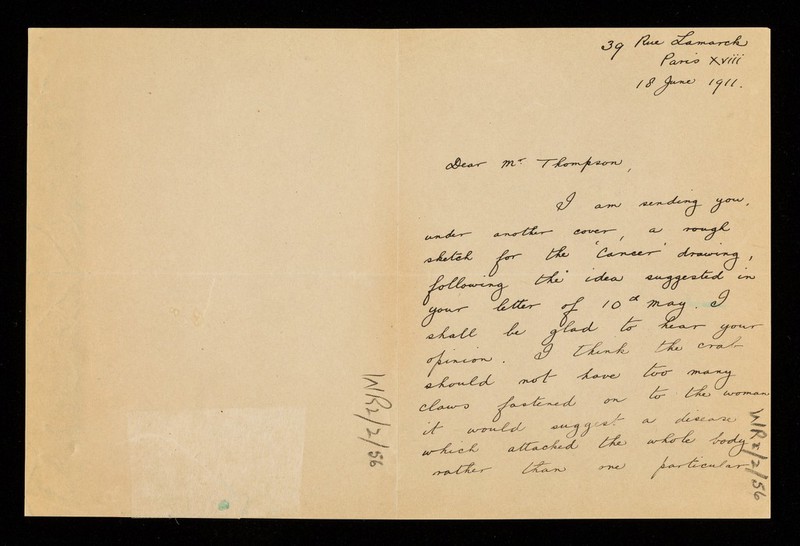 39 Rue Lamarck
Paris XVIII
18 June 1911.
Dear Mr Thompson,
I am sending you,
under another cover, a rough
sketch for the 'Cancer' drawing,
following the idea suggested in
your letter of 10th May. I
shall be glad to hear your
opinion. I think the crab
should not have too many
claws fastened on to the woman
it would suggest a disease
which attacked the whole body
rather than one particular
WR2/2/56
WR2/2/56